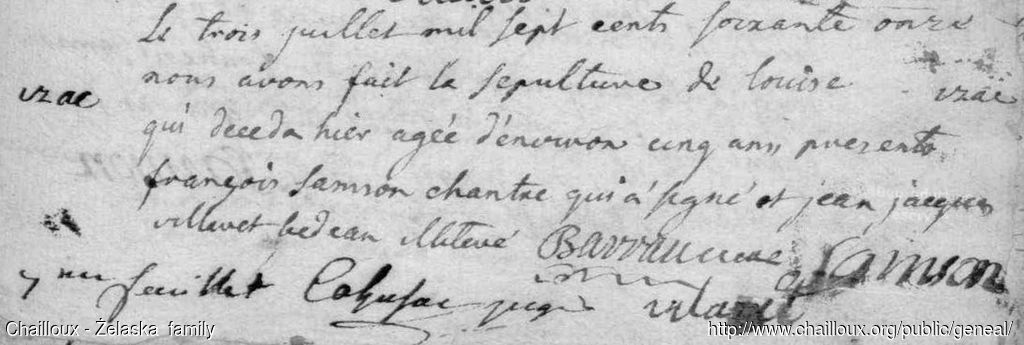 Le trois juillet mil sept cents soixante onze
nous avons fait la sepulture de louise izac
izac
qui deceda hier agée d'environ cinq ans presents
françois Samson chantre qui a signé et jean jacques
villaret bedeau illiteré Barrau curé Samson
7me feuillet Cahusac juge
Chailloux - Żelaska family
http://www.chailloux.org/public/geneal/